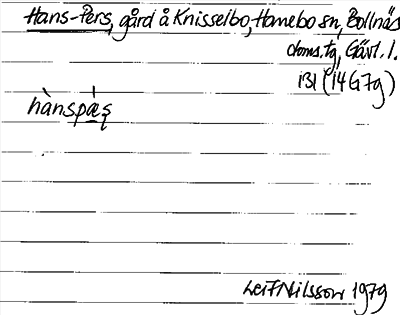 Hans-Pers, gård å Knisselbo, Hamebo sn, Bollnäs
doms.tg, Gävl. l.
IBI (14G7g)
hànspæ̀ṣ
Leif Nilsson 1979